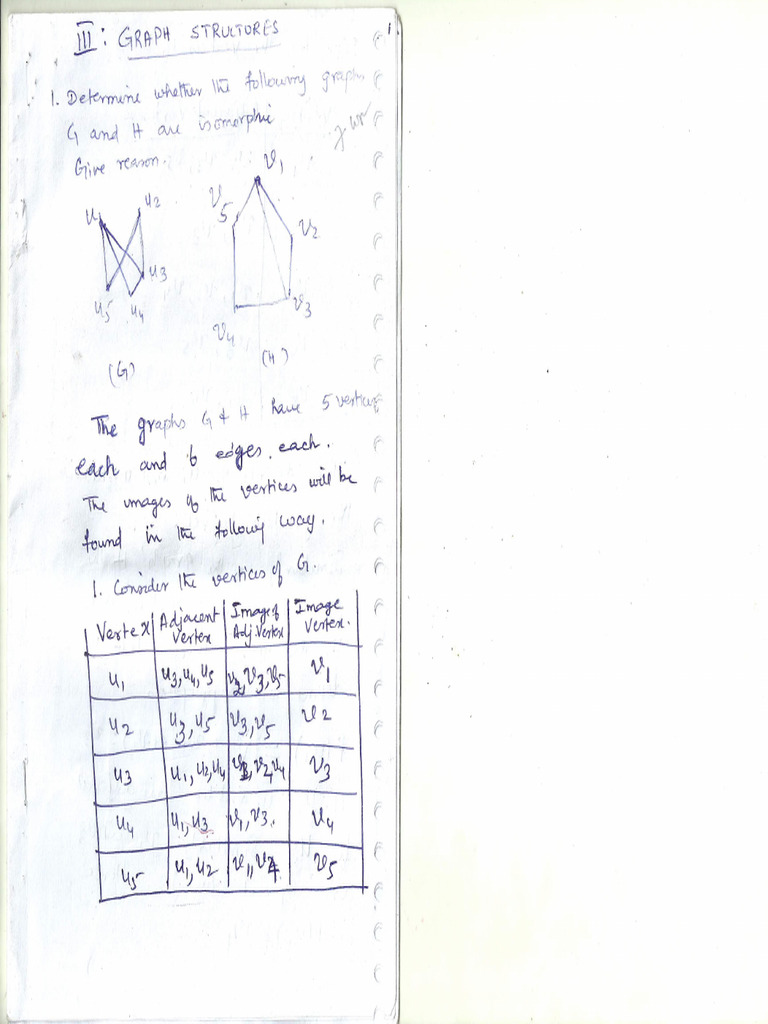 III : GRAPH STRUCTURES
1.
1. Determine whether the following graphs
G and H are isomorphic
Give reason.
u1 u2
u3
u5 u4
(G)
v1
v5
v2
v3
v4
(H)
The graphs G & H have 5 vertices
each and 6 edges each.
The images of the vertices will be
found in the following way.
1. Consider the vertices of G.
Vertex Adjacent Vertex Image of Adj. Vertex Image Vertex.
u1 u3, u4, u5 v2, v3, v5 v1
u2 u3, u5 v3, v5 v2
u3 u1, u2, u4 v2, v4 v3
u4 u1, u3 v1, v3. v4
u5 u1, u2 v1, v5